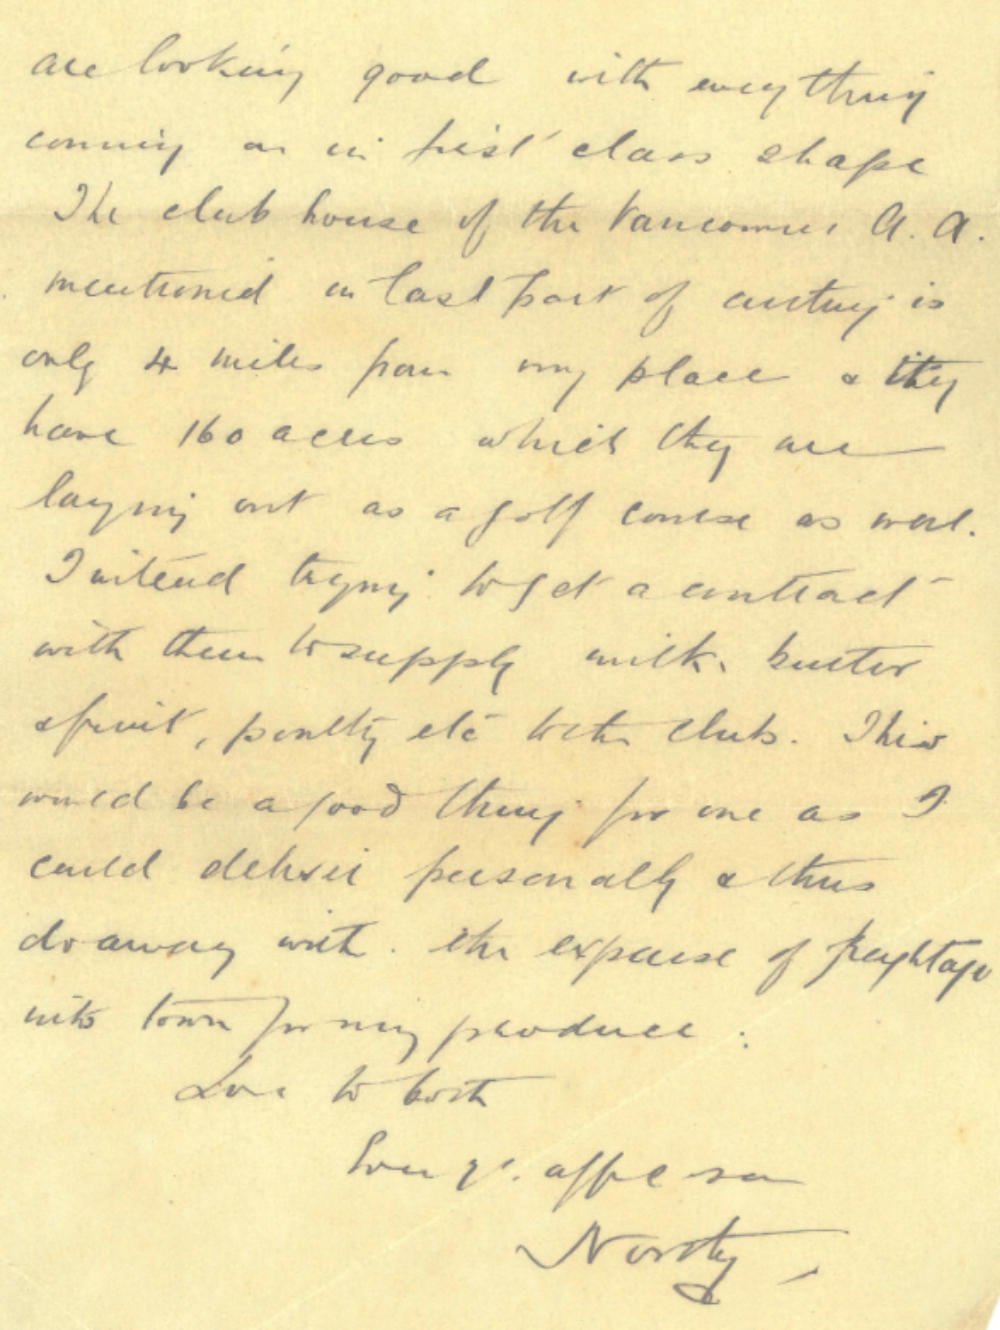 are looking good with everything
coming on in first class shape
The club house of the Vancouver A. A.
mentioned in last part of cutting is
only 4 miles from my place & they
have 160 acres which they are
laying out as a golf course as well.
I intend trying to get a contract
with them to supply milk, butter
& fruit, poultry etc to the club. This
would be a good thing for me as I
could deliver personally & thus
do away with the expense of freightage
into town for my produce.
Love to both
Your affec son